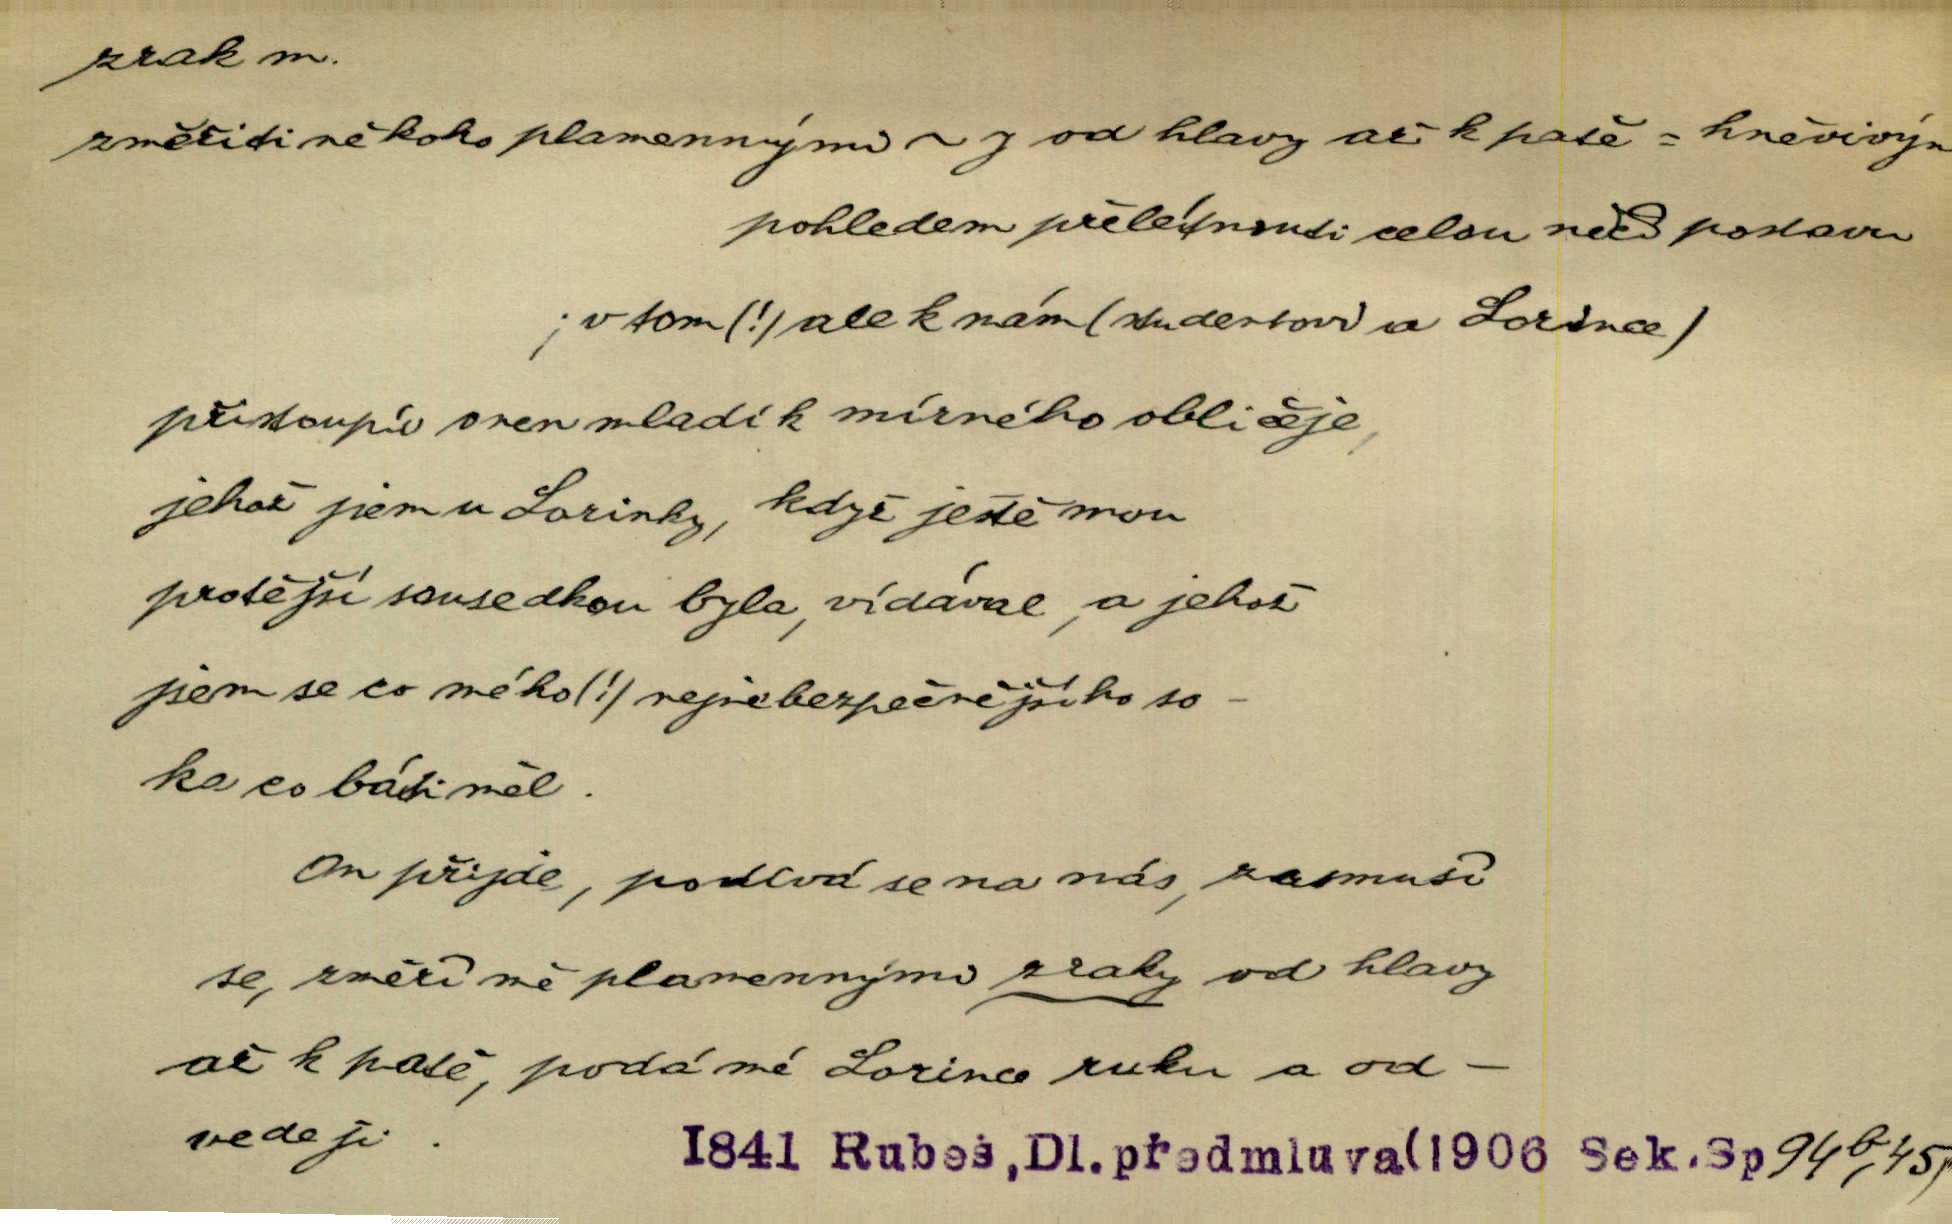 zrak m.
změřiti někoho plamennými ~ y od hlavy až k patě = hněvivým
pohledem přelétnouti celou něčí postavu
; v tom (!) ale k nám (studentovi a Lorince)
přistoupív onen mladík mírného obličeje,
jehož jsem u Lorinky, když ještě mou
protější sousedkou byla, vídával, a jehož
jsem se co mého (!) nejnebezpečnějšího so-
ka co báti měl.
On přijde, podívá se na nás, zasmuší
se, změří mě plamennými zraky od hlavy
až k patě, podá mé Lorince ruku a od-
vede ji.
1841 Rubeš, Dl. předmluva (1906 Sek. Sp 94b, 45)